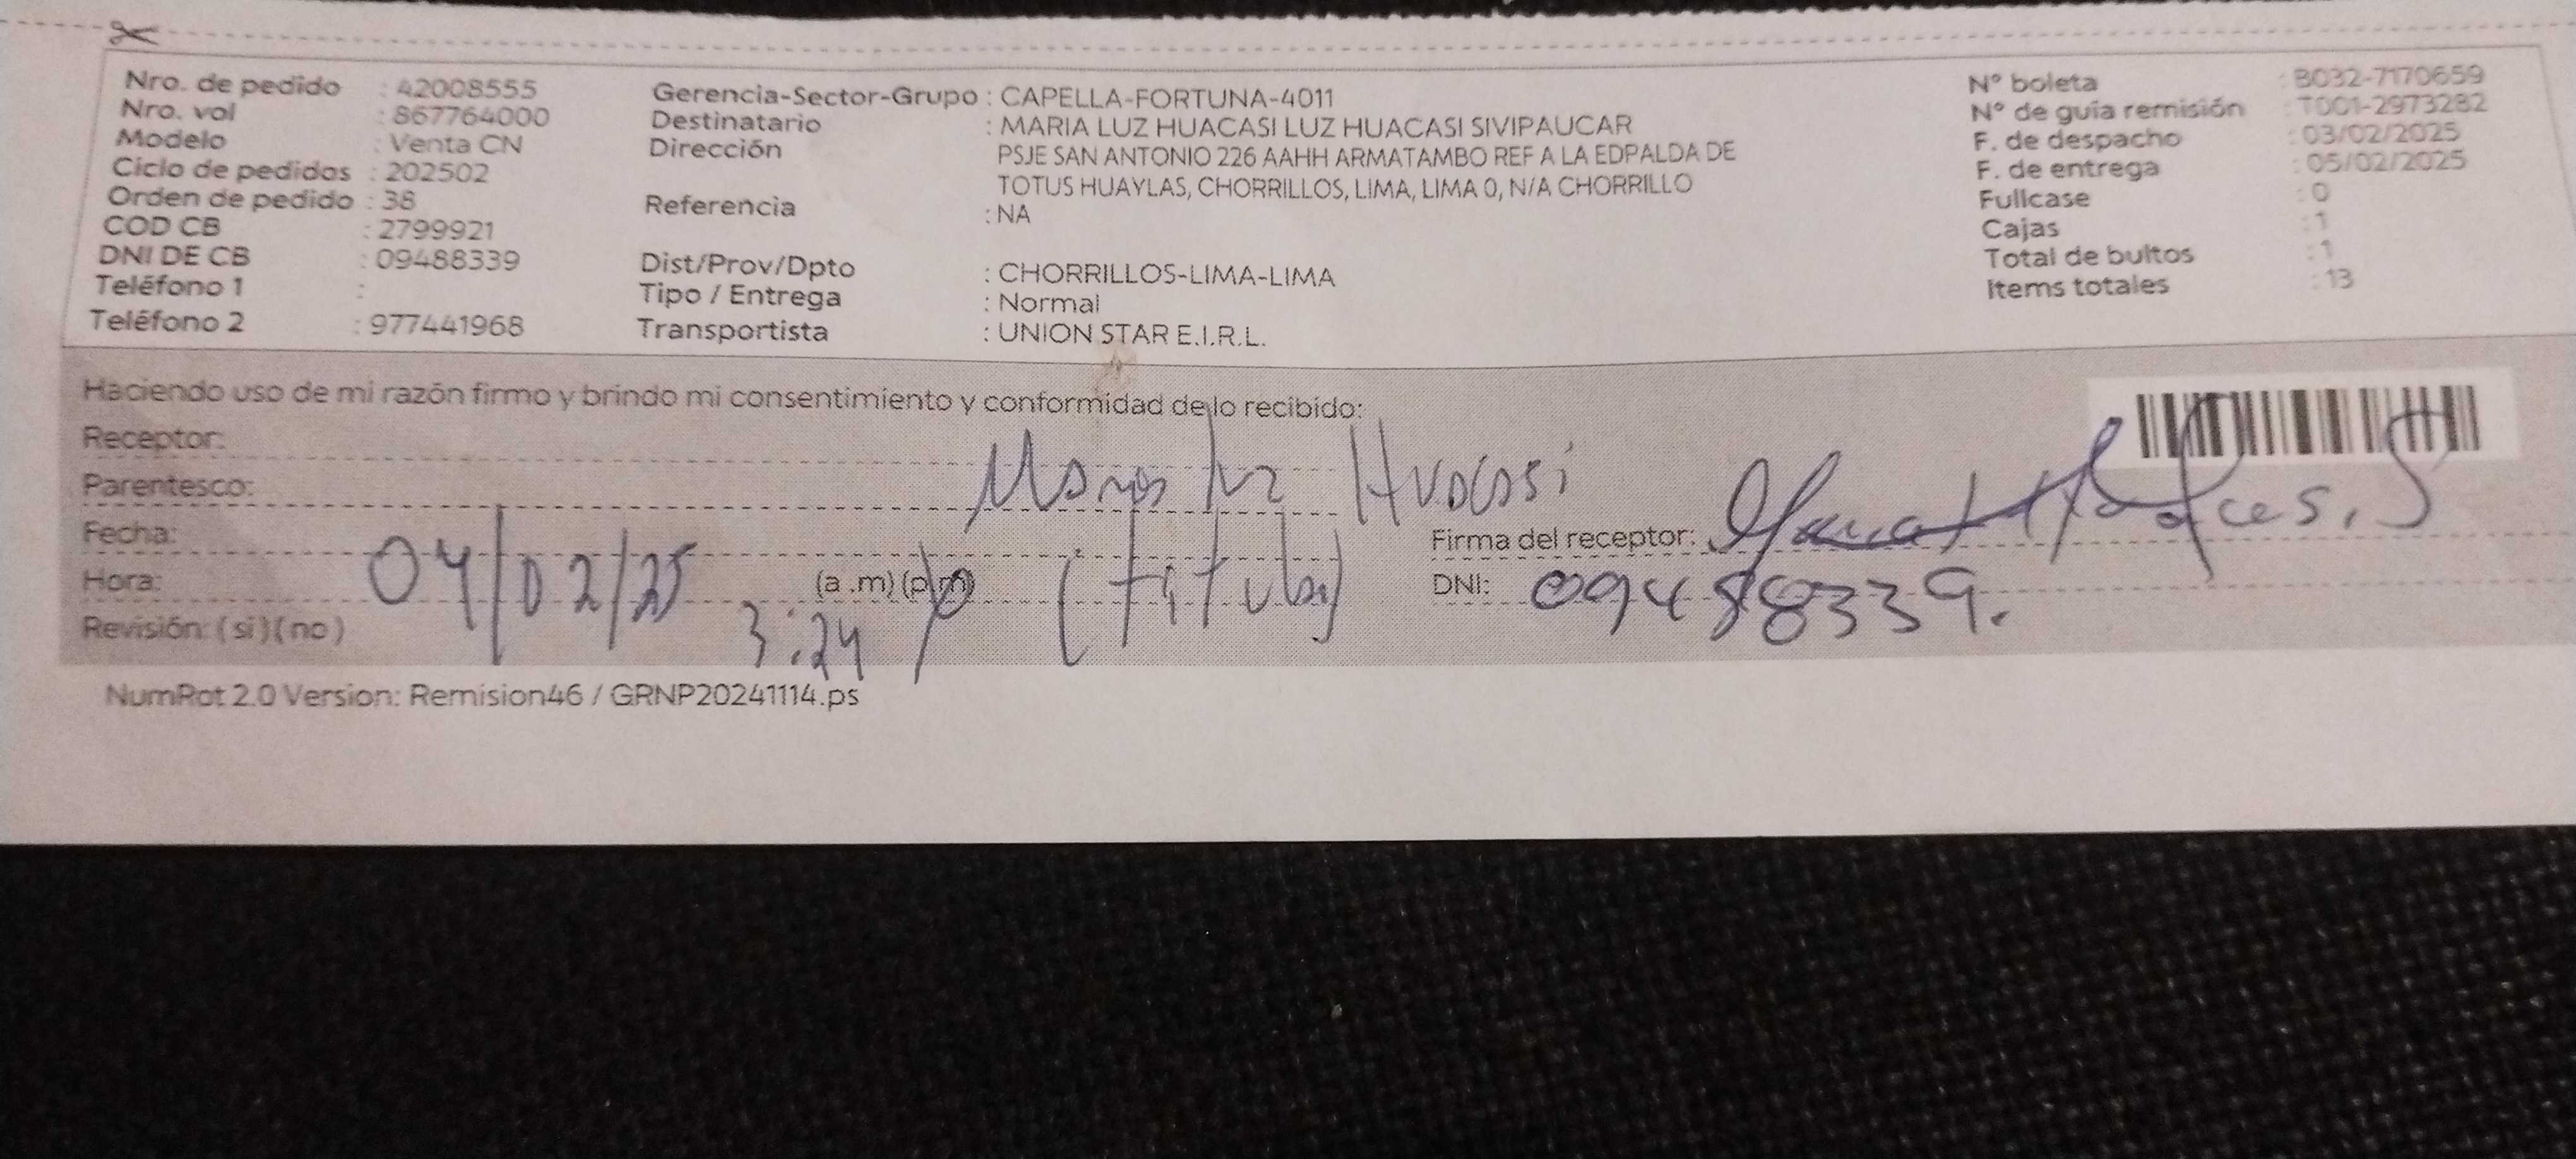 Nro. de pedido : 42008555
Nro. vol : 867764000
Modelo : Venta CN
Ciclo de pedidos : 202502
Orden de pedido : 38
COD CB : 2799921
DNI DE CB : 09488339
Teléfono 1 :
Teléfono 2 : 977441968
Gerencia-Sector-Grupo : CAPELLA-FORTUNA-4011
Destinatario : MARIA LUZ HUACASI LUZ HUACASI SIVIPAUCAR
Dirección PSJE SAN ANTONIO 226 AAHH ARMATAMBO REF A LA EDPALDA DE
TOTUS HUAYLAS, CHORRILLOS, LIMA, LIMA 0, N/A CHORRILLO
Referencia : NA
Dist/Prov/Dpto : CHORRILLOS-LIMA-LIMA
Tipo / Entrega : Normal
Transportista : UNION STAR E.I.R.L.
N° boleta : B032-7170659
N° de guía remisión : T001-2973282
F. de despacho : 03/02/2025
F. de entrega : 05/02/2025
Fullcase : 0
Cajas : 1
Total de bultos : 1
Items totales : 13
Haciendo uso de mi razón firmo y brindo mi consentimiento y conformidad de lo recibido:
Receptor:
Parentesco: Maria Luz Huacasi
Fecha:
Firma del receptor:
Hora: 04/02/25 (a.m) (p.m) (titular)
DNI: 09488339.
Revisión: (si) (no) 3:24 p
NumRot 2.0 Version: Remision46 / GRNP20241114.ps